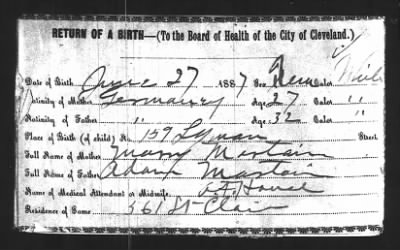 RETURN OF A BIRTH—(To the Board of Health of the City of Cleveland.)
Date of Birth June 27 1887 Sex Fem Color White
Nativity of Mother Germany Age 27 Color "
Nativity of Father " Age 32 Color "
Place of Birth (of child) No. 159 Lyman Street
Full Name of Mother Mary Martain
Full Name of Father Adam Martain
Name of Medical Attendant or Midwife.
Residence of Same 561 St Clair